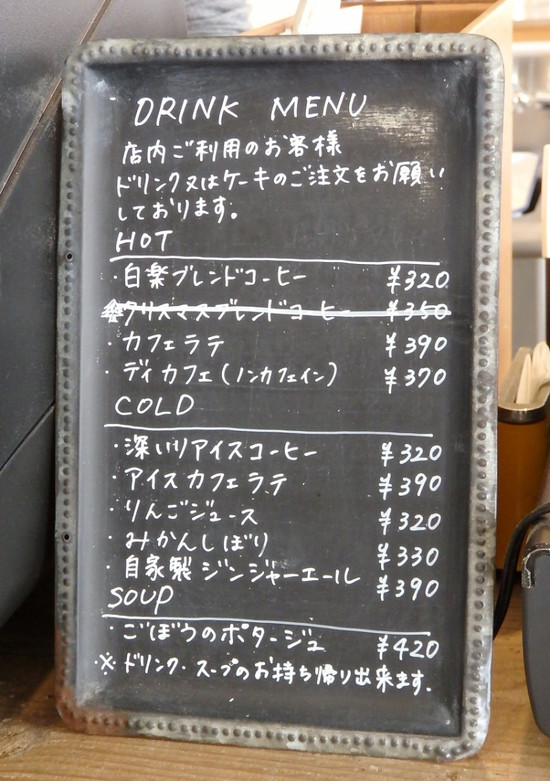 DRINK MENU
店内ご利用のお客様
ドリンク又はケーキのご注文をお願い
しております。
HOT
・白楽ブレンドコーヒー ¥320
クリスマスブレンドコーヒー ¥350
・カフェラテ ¥390
・ディカフェ(ノンカフェイン) ¥370
COLD
・深いりアイスコーヒー ¥320
・アイスカフェラテ ¥390
・りんごジュース ¥320
・みかんしぼり ¥330
・自家製ジンジャーエール ¥390
SOUP
・ごぼうのポタージュ ¥420
※ドリンク・スープのお持ち帰り出来ます.